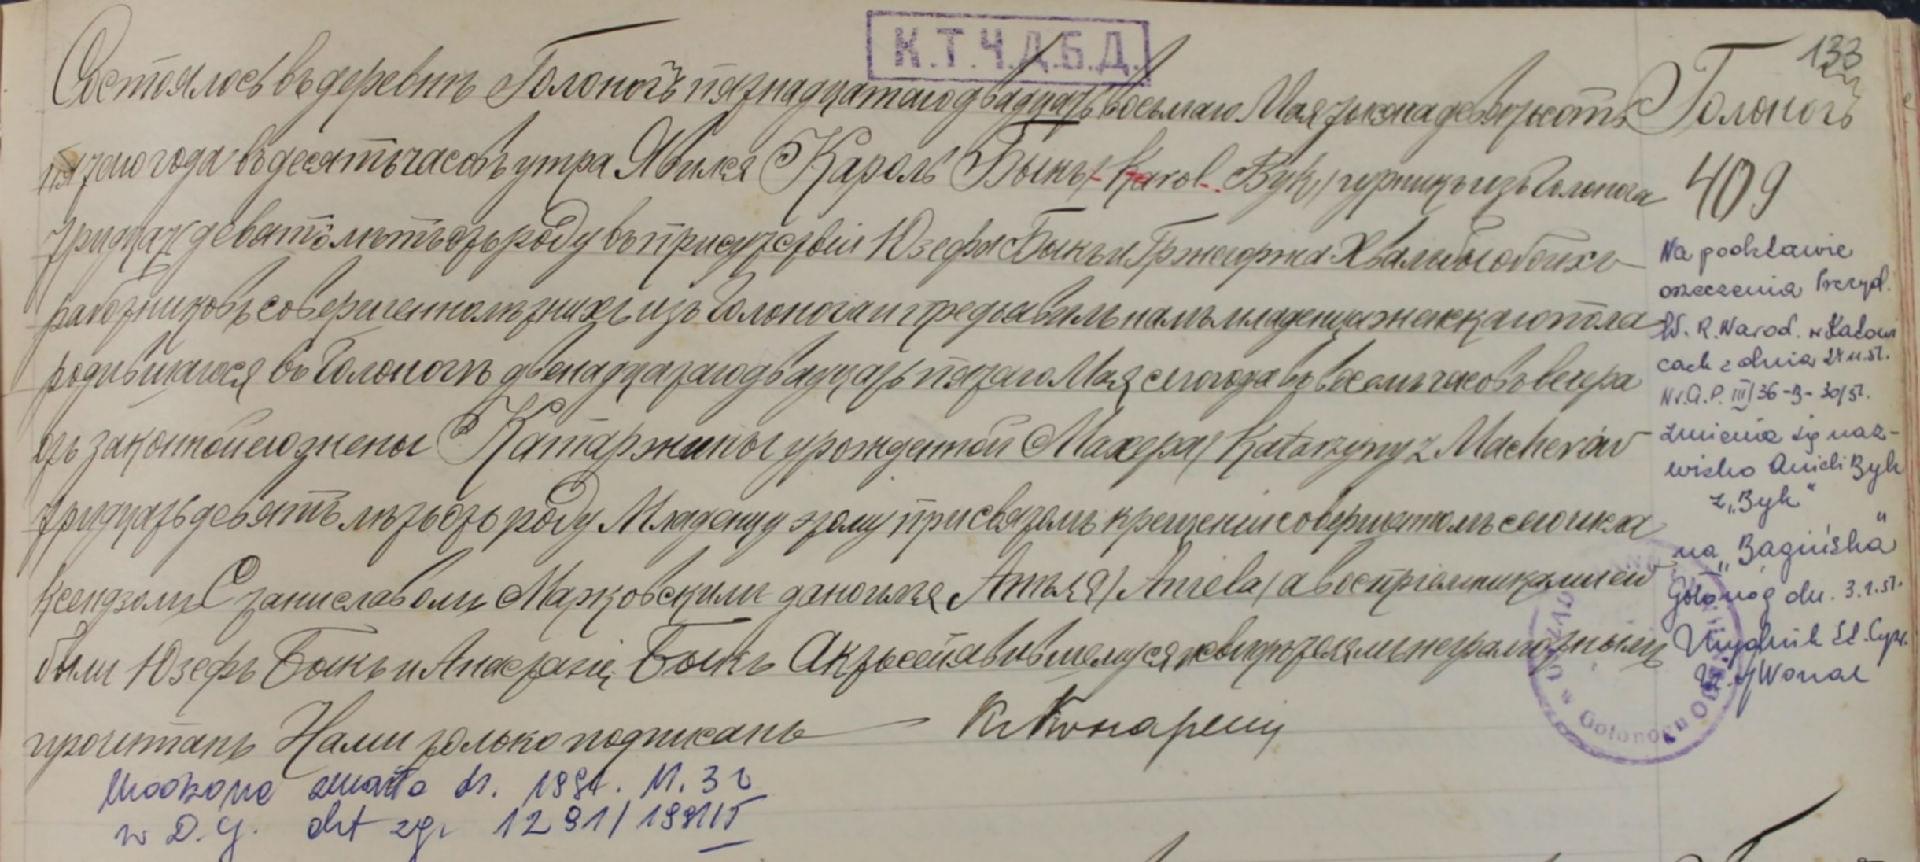 К.Т.Ч.Д.Б.Д.
133
Состоялось въ деревнѣ Голоногъ пятнадцатаго двадцать восьмаго Мая тысяча девятьсотъ
Голоногъ
пятаго года въ десять часовъ утра Явился Кароль Быкъ / Karol Byk / гурникъ изъ Голонога
409
тридцати девяти лѣтъ отъ роду въ присутствіи Юзефа Быкъ и Гржегоржа Хвалыбы обоихъ
работниковъ совершеннолѣтнихъ изъ Голонога и предъявилъ намъ младенца женскаго пола
родившагося въ Голоногѣ двенадцатаго двадцать пятаго Мая сего года въ восемь часовъ вечера
отъ законной его жены Катаржины урожденной Махера / Katarzyny z Macherów
тридцать девять лѣтъ отъ роду Младенцу этому при святомъ крещеніи совершенномъ сего числа
Ксендзомъ Станиславомъ Марковскимъ дано имя Анеля / Aniela / а воспріемниками ей
были Юзефъ Быкъ и Анастазія Быкъ Актъ сей явившемуся и свидѣтелямъ неграмотнымъ
прочитанъ Нами только подписанъ
Na podstawie
orzeczenia Prezyd.
W. R. Narod. w Katowi
cach z dnia
zmienia się naz-
wisko Anieli Byk
z „Byk"
na „Bagińska"
Gołonóg dn.
Urzędnik St. Cyw.
w Gołonogu
zmarła
w D. G. akt zg.